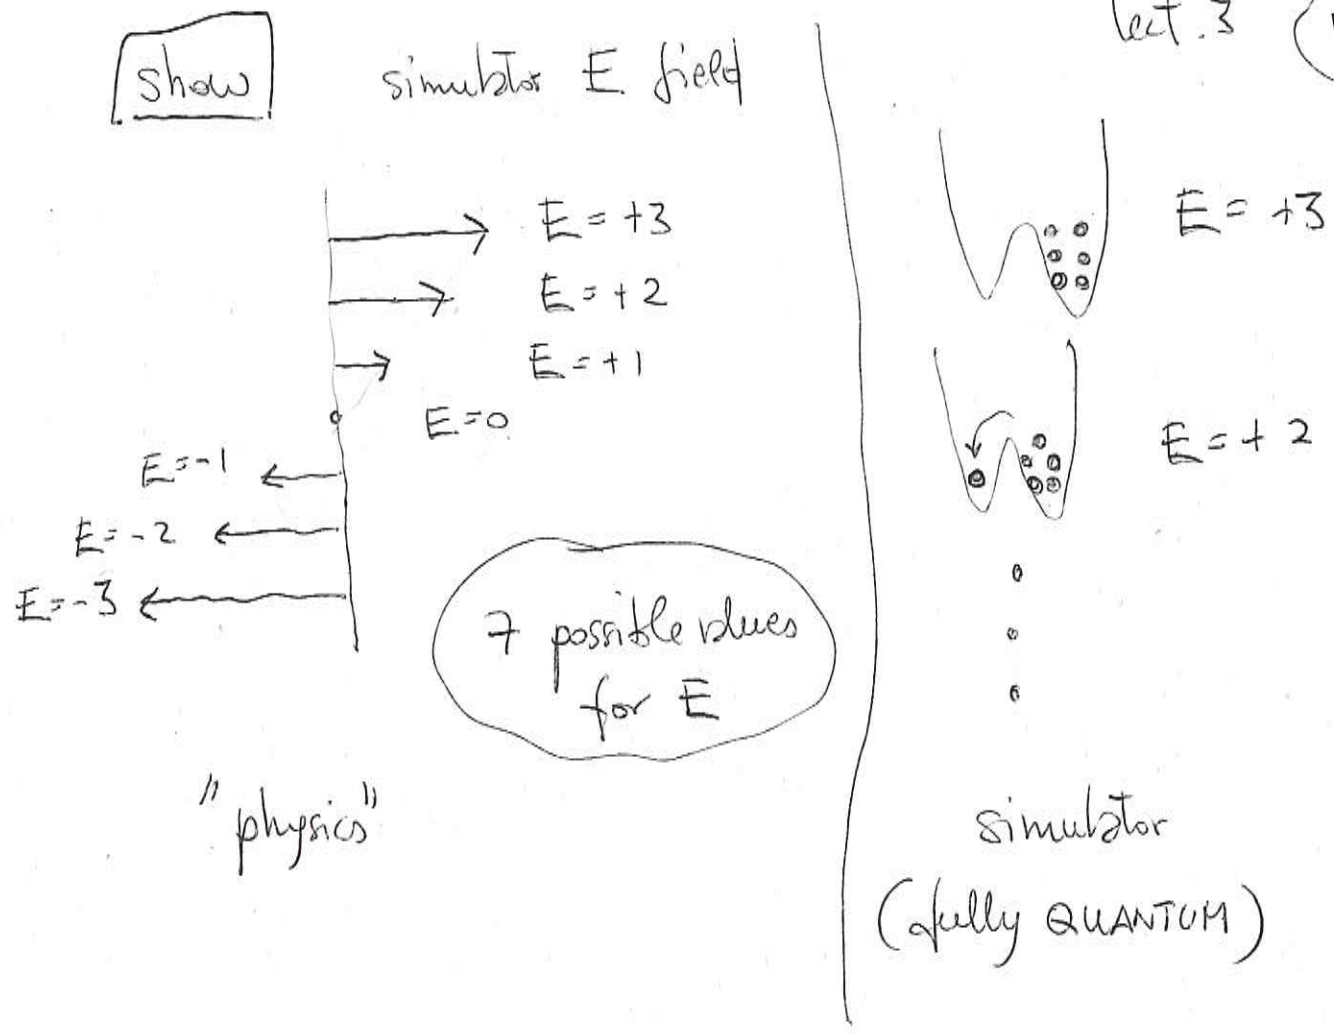 show
simulator E field
E = +3
E = +2
E = +1
E = 0
E = -1
E = -2
E = -3
7 possible values
for E
"physics"
lect. 3
E = +3
E = + 2
simulator
(fully QUANTUM)